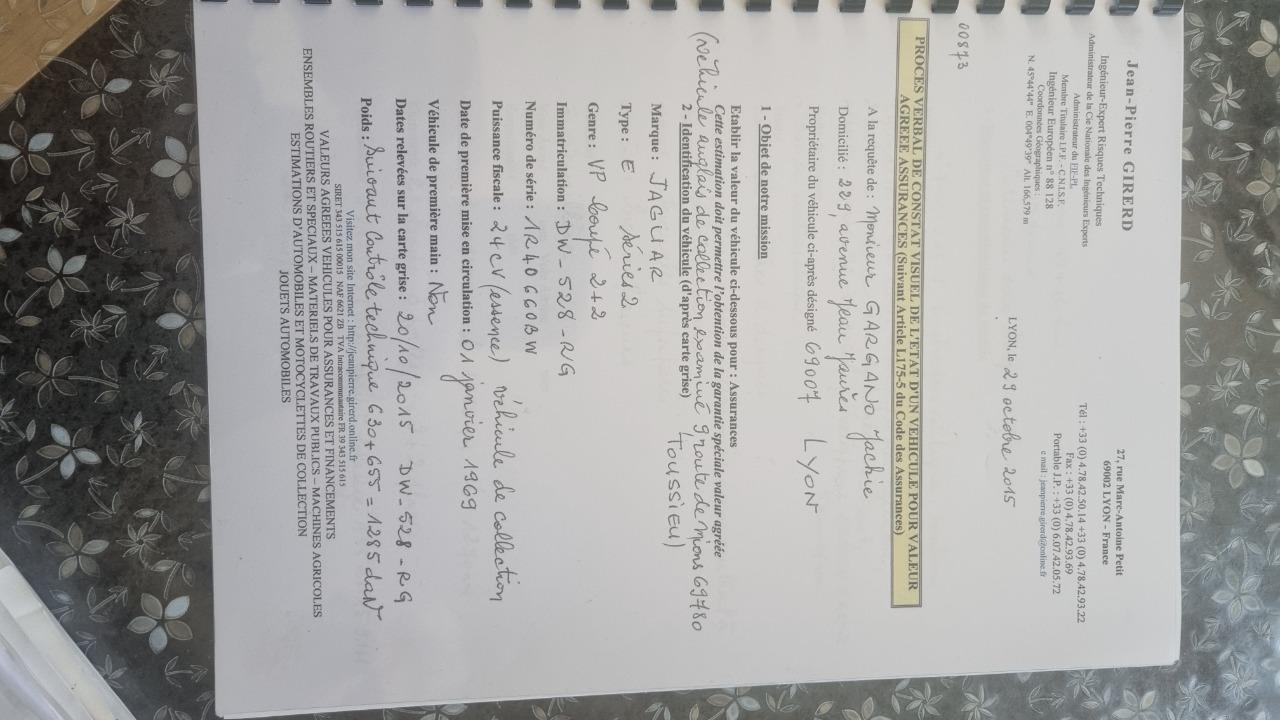 Jean-Pierre GIRERD
Ingénieur-Expert Risques Techniques
Administrateur de la Cie Nationale des Ingénieurs Experts
Administrateur du
Membre Titulaire I.P.F. - C.N.I.S.F.
Ingénieur Européen n° 88 128
Coordonnées Géographiques :
N. 45°44'44" E. 004°49'39" Alt. 166,579 m
27, rue Marc-Antoine Petit
69002 LYON - France
Tél : +33 (0) 4.78.42.50.14 +33 (0) 4.78.42.93.22
Fax : +33 (0) 4.78.42.93.69
Portable J.P. : +33 (0) 6.07.42.05.72
e mail : jeanpierre.girerd@online.fr
LYON, le 29 octobre 2015
00873
PROCES VERBAL DE CONSTAT VISUEL DE L'ETAT D'UN VEHICULE POUR VALEUR
AGREEE ASSURANCES (Suivant Article L175-5 du Code des Assurances)
A la requête de : Monsieur GARGANO Jachie
Domicilié : 229, avenue Jean Jaurès
Propriétaire du véhicule ci-après désigné 69007 LYON
1 - Objet de notre mission
Etablir la valeur du véhicule ci-dessous pour : Assurances
Cette estimation doit permettre l'obtention de la garantie spéciale valeur agréée
(véhicule anglais de collection examiné 9 route de Mions 69780
TOUSSIEU)
2 - Identification du véhicule (d'après carte grise)
Marque : JAGUAR
Type : E séries 2
Genre : VP coupé 2+2
Immatriculation : DW-528-RG
Numéro de série : 1R40660BW
Puissance fiscale : 24 cv (essence) véhicule de collection
Date de première mise en circulation : 01 janvier 1969
Véhicule de première main : Non
Dates relevées sur la carte grise : 20/10/2015 DW-528-RG
Poids : Suivant Contrôle technique 630+655 = 1285 daN
Visitez mon site Internet : http://jeanpierre.girerd.online.fr
SIRET 343 515 615 00015 NAF 6621 ZB TVA Intracommunautaire FR 39 343 515 615
VALEURS AGREEES VEHICULES POUR ASSURANCES ET FINANCEMENTS
ENSEMBLES ROUTIERS ET SPECIAUX – MATERIELS DE TRAVAUX PUBLICS – MACHINES AGRICOLES
ESTIMATIONS D'AUTOMOBILES ET MOTOCYCLETTES DE COLLECTION
JOUETS AUTOMOBILES